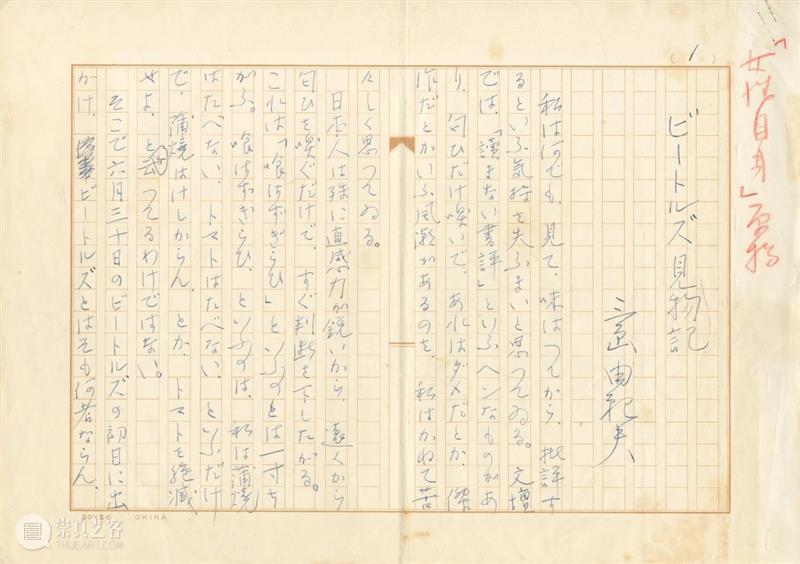 「女性自身」原稿
(1)
ビートルズ見物記
三島由紀夫
私は何でも、見て、味はつてから、批評す
るといふ気持を失ふまいと思つてゐる。文壇
では、「讀まない書評」といふヘンなものがあ
り、匂ひだけ嗅いで、あれはダメだとか、傑
作だとかいふ風潮があるのを、私はかねて苦
々しく思つてゐる。
日本人は殊に直感力が鋭いから、遠くから
匂ひを嗅ぐだけで、すぐ判断を下したがる。
これは「喰はずぎらひ」といふのとは一寸ち
がふ。喰はずぎらひ、といふのは、私は蒲焼
はたべない、トマトはたべない、といふだけ
で、蒲焼はけしからん、とか、トマトを絶滅
せよ、と云つてるわけではない。
そこで六月三十日のビートルズの初日に出
かけ、ビートルズとはそも何者ならん、
20×20 OKINA
崇真艺客
TRUEART.COM